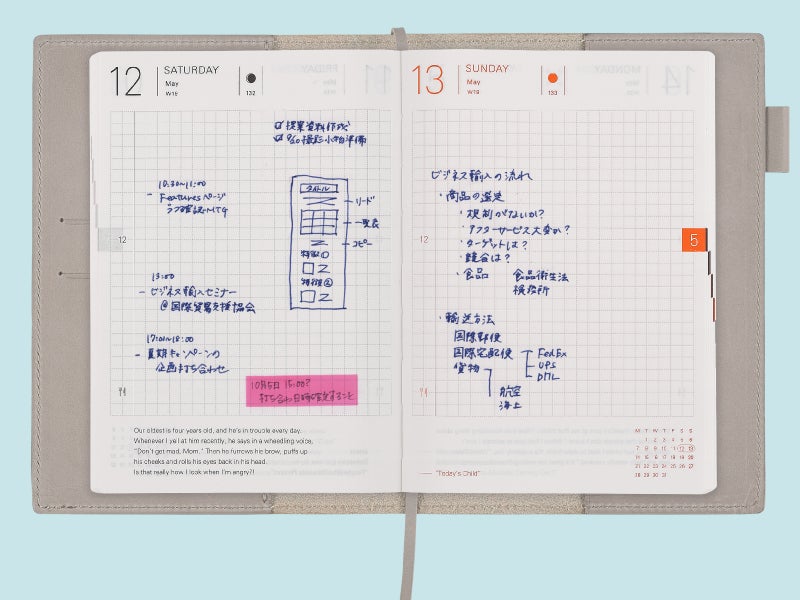 12
SATURDAY
May
W19
132
提案資料作成
9/20 撮影小物準備
10:30~11:00
- Featuresページ
ラフ確認MTG
タイトル
リード
一覧表
コピー
特徴①
特徴②
12
13:00
- ビジネス輸入セミナー
@国際貿易支援協会
17:00~18:00
- 夏期キャンペーンの
企画打ち合わせ
10月5日 15:00?
打ち合わせ日時確定すること
Our oldest is four years old, and he's in trouble every day.
Whenever I yell at him recently, he says in a wheedling voice,
"Don't get mad, Mom." Then he furrows his brow, puffs up
his cheeks and rolls his eyes back in his head.
Is that really how I look when I'm angry?!
13
SUNDAY
May
W19
133
ビジネス輸入の流れ
・商品の選定
・規制がないか?
・アフターサービス大変か?
・ターゲットは?
・競合は?
・食品 食品衛生法
検疫所
12
5
・輸送方法
国際郵便
国際宅配便
FedEx
UPS
DHL
貨物
航空
海上
"Today's Child"
M T W T F S S
1 2 3 4 5 6
7 8 9 10 11 12 13
14 15 16 17 18 19 20
21 22 23 24 25 26 27
28 29 30 31